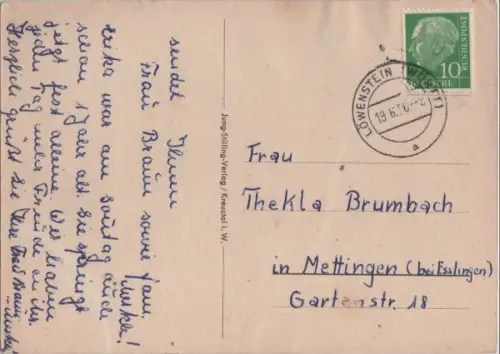 sendet Ihnen
Frau Braun sowie Fam.
Erika war am Sonntag auch
schon 1 Jahr alt. Sie springt
jetzt fest alleine. Wir haben
jeden Tag mehr Freude an ihr.
Herzlich grüßt Sie Ihre Frau Braun
Jung-Stilling-Verlag / Kreuztal i. W.
DEUTSCHE
BUNDESPOST
10
LÖWENSTEIN (WÜRTT)
19.6.
a
Frau
Thekla Brumbach
in Mettingen (bei Esslingen)
Gartenstr. 18